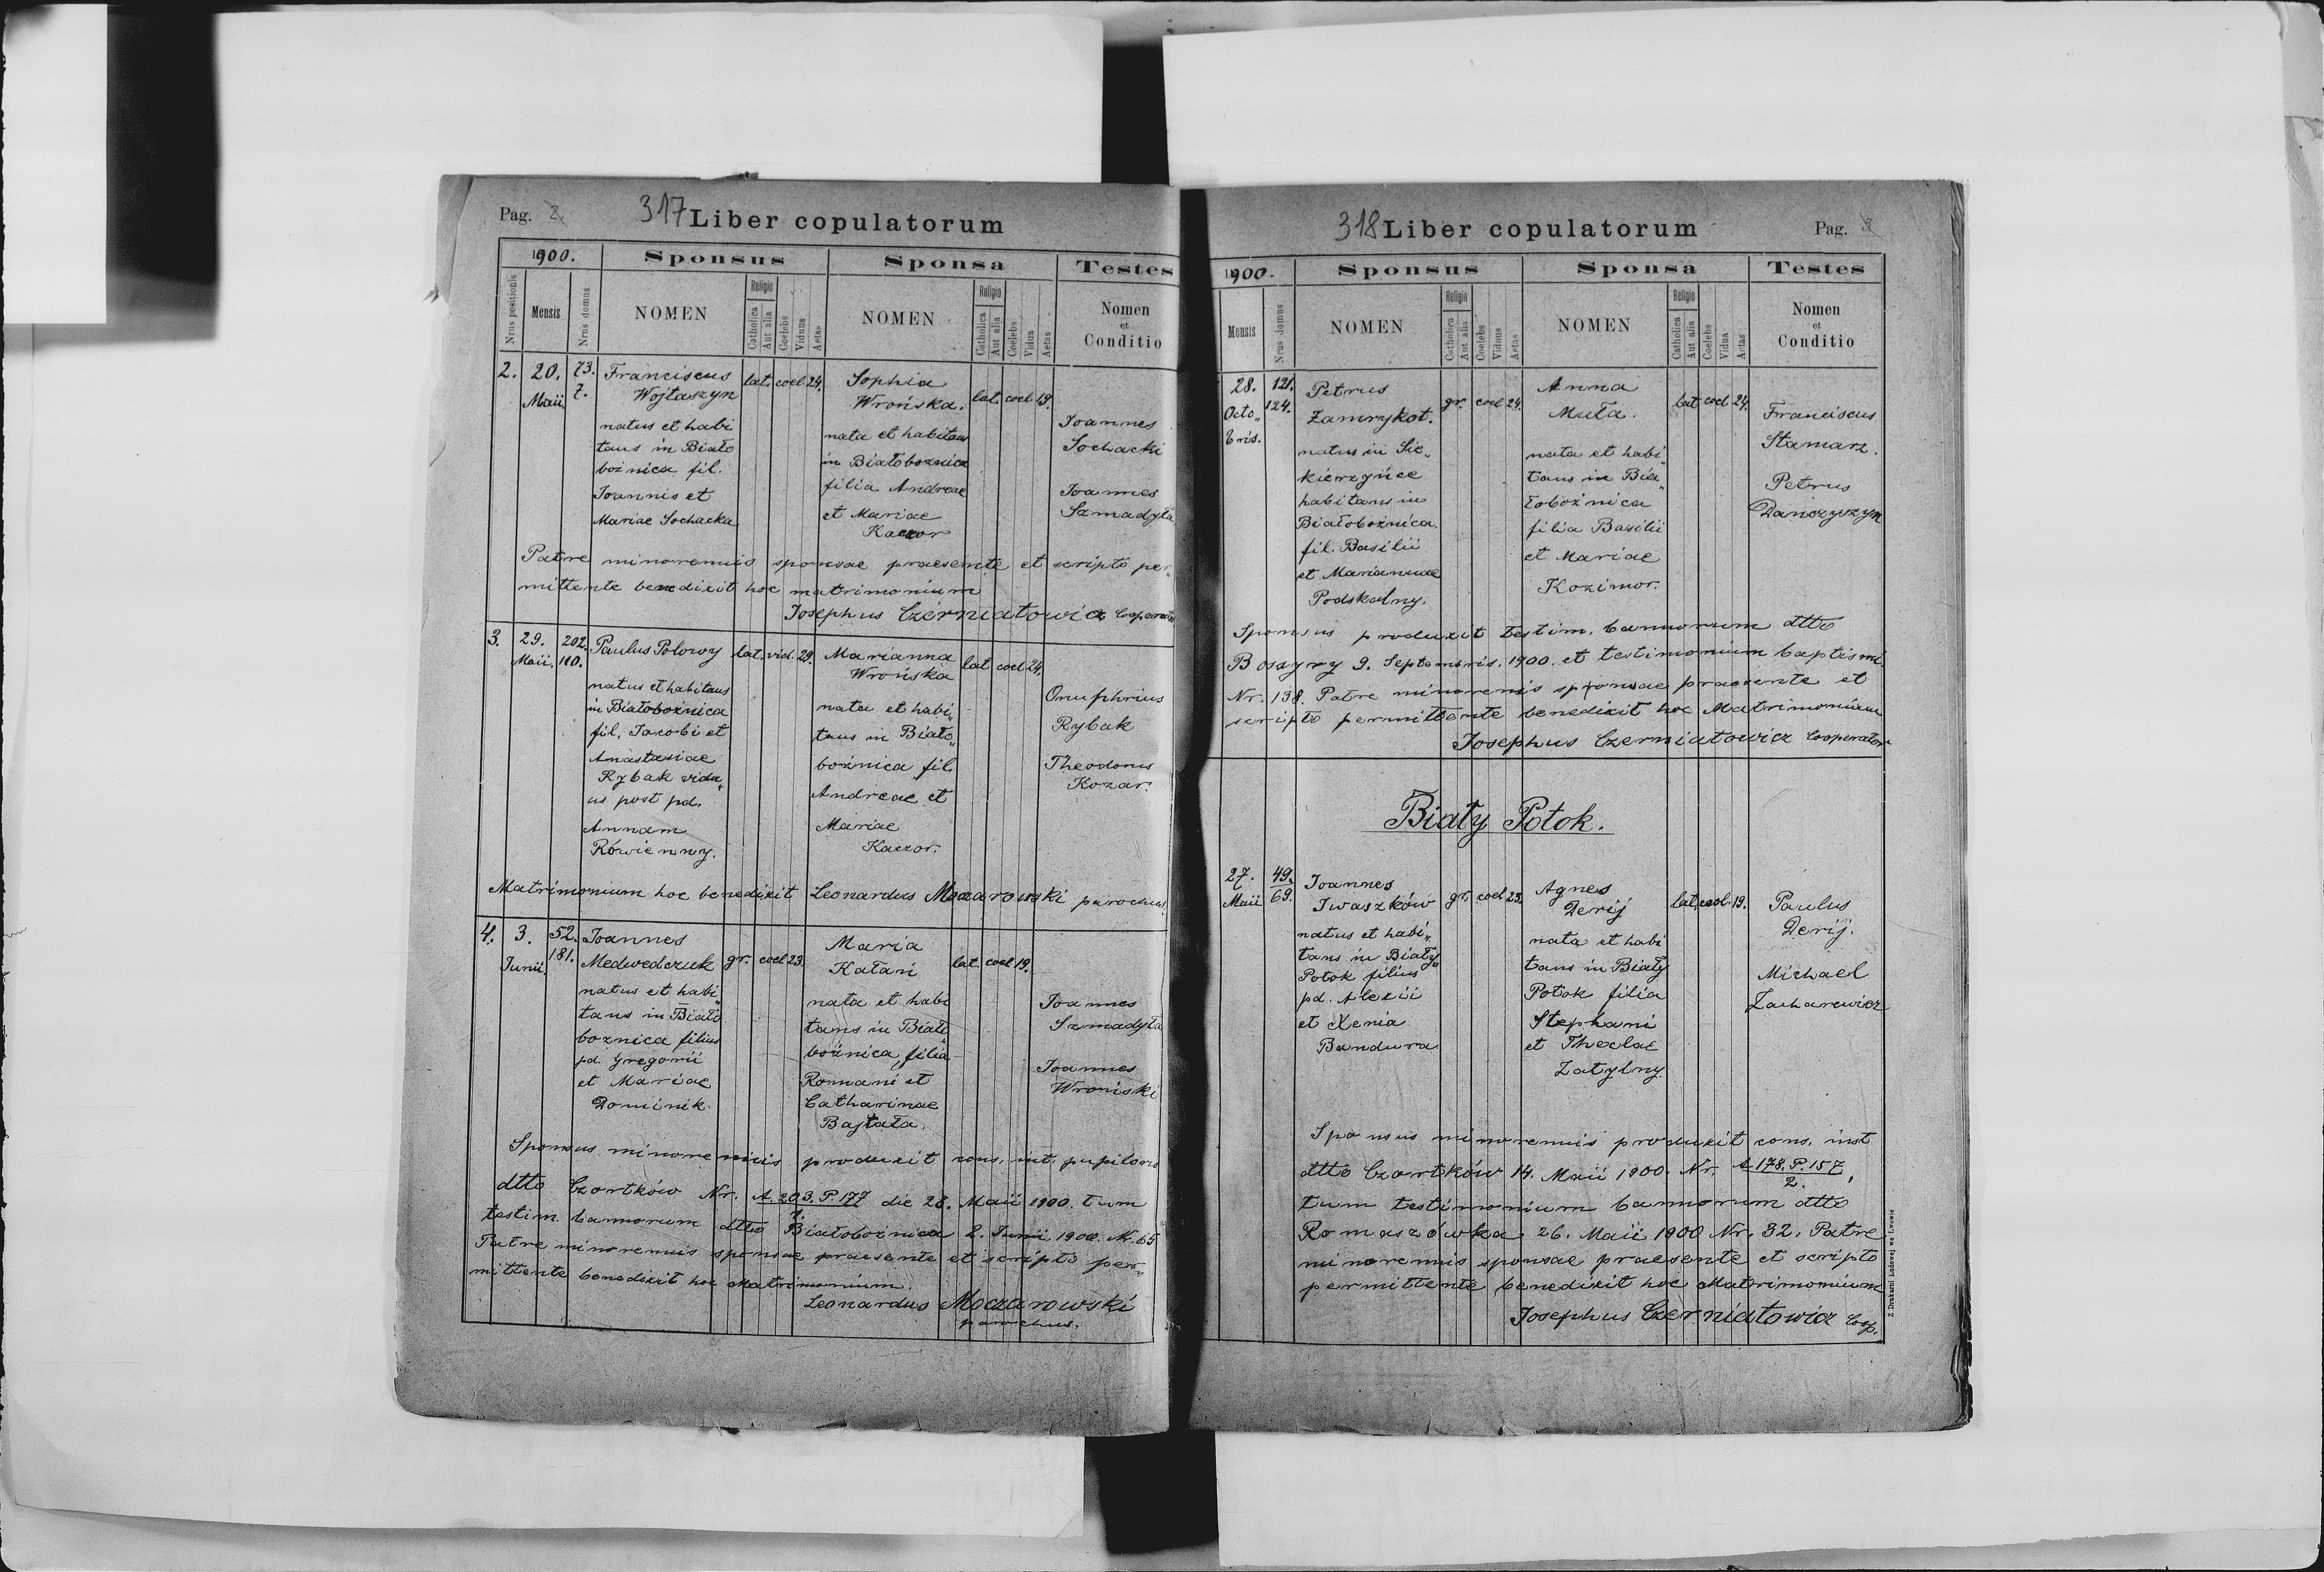 Pag. 2
317 Liber copulatorum
1900.
Sponsus
Sponsa
Testes
Nrus positionis
Mensis
Nrus domus
NOMEN
Religio
Catholica
Aut alia
Coelebs
Viduus
Aetas
NOMEN
Religio
Catholica
Aut alia
Coelebs
Vidua
Aetas
Nomen
et
Conditio
2. 20. Maii, 73. 7.
Franciscus
Wojtaszyn
natus et habi
tans in Biało
bożnica fil.
Joannis et
Mariae Sochacka
lat. coel. 24.
Sophia
Wrońska.
nata et habitans
in Białobożnica
filia Andreae
et Mariae
Kaczor
lat. coel 19.
Joannes
Sochacki
Joannes
Szmadyła
Patre minorennis sponsae praesente et scripto per„
mittente benedixit hoc matrimonium
Josephus Czerniatowicz Cooperator
3. 29. Maii. 202. 110.
Paulus Połowy
natus et habitans
in Białobożnica
fil. Jacobi et
Anastasiae
Rybak vidu„
us post pd.
Annam
Rówienny.
lat. vid. 29.
Marianna
Wrońska
nata et habi„
tans in Biało„
bożnica fil
Andreae et
Mariae
Kaczor.
lat coel 24,
Onuphrius
Rybak
Theodorus
Kozar.
Matrimonium hoc benedixit Leonardus Moczarowski parochus.
4. 3. Junii, 52. 181.
Joannes
Medwedczuk
natus et habi„
tans in Biało
bożnica filius
pd. Gregorii
et Mariae
Dominik.
gr. coel 23.
Maria
Kałań
nata et habi
tans in Biało„
bożnica filia
Romani et
Catharinae
Bajtała.
lat. coel 19.
Joannes
Szmadyła
Joannes
Wroński
Sponsus minorennis produxit cons. int. pupilaris
dtto Czortków Nr. A. 203. P. 177 die 28. Maii 1900. tum
testim. bannorum dtto Białobożnica 2. Junii 1900. Nr. 65
Patre minorennis sponsae praesente et scripto per„
mittente benedixit hoc Matrimonium.
Leonardus Moczarowski
parochus.
318 Liber copulatorum
Pag. 3
1900.
Sponsus
Sponsa
Testes
Mensis
Nrus domus
NOMEN
Religio
Catholica
Aut alia
Coelebs
Viduus
Aetas
NOMEN
Religio
Catholica
Aut alia
Coelebs
Vidua
Aetas
Nomen
et
Conditio
28. Octo„ bris. 121. 124.
Petrus
Zamrykot.
natus in Sie„
kierzyńce
habitans in
Białobożnica.
fil. Basilii
et Mariannae
Podskalny.
gr. coel 24.
Anna
Muła.
nata et habi„
tans in Bia„
łobożnica
filia Basilii
et Mariae
Kozimor.
lat coel 24.
Franciscus
Stamarz.
Petrus
Danczyszyn
Sponsus produxit testim. bannorum dtto
Bosyry 9. Septembris. 1900. et testimonium baptismi.
Nr. 138. Patre minorennis sponsae praesente et
scripto permittente benedixit hoc Matrimonium
Josephus Czerniatowicz Cooperator
Biały Potok.
27. Maii 49. 69.
Joannes
Iwaszków
natus et habi„
tans in Biały
Potok filius
pd. Alexii
et Xenia
Bandura
gr. coel 23.
Agnes
Derij
nata et habi
tans in Biały
Potok filia
Stephani
et Theclae
Zatylny.
lat. coel. 19.
Paulus
Derij.
Michael
Zacharewicz
Sponsus minorennis produxit cons. inst
dtto Czortków 14. Maii 1900. Nr. A. 178. P. 157,
2.
tum testimonium bannorum dtto
Romaszówka 26. Maii 1900 Nr. 32. Patre
minorennis sponsae praesente et scripto
permittente benedixit hoc Matrimonium
Josephus Czerniatowicz Coop.
Z Drukarni Ludowej we Lwowie